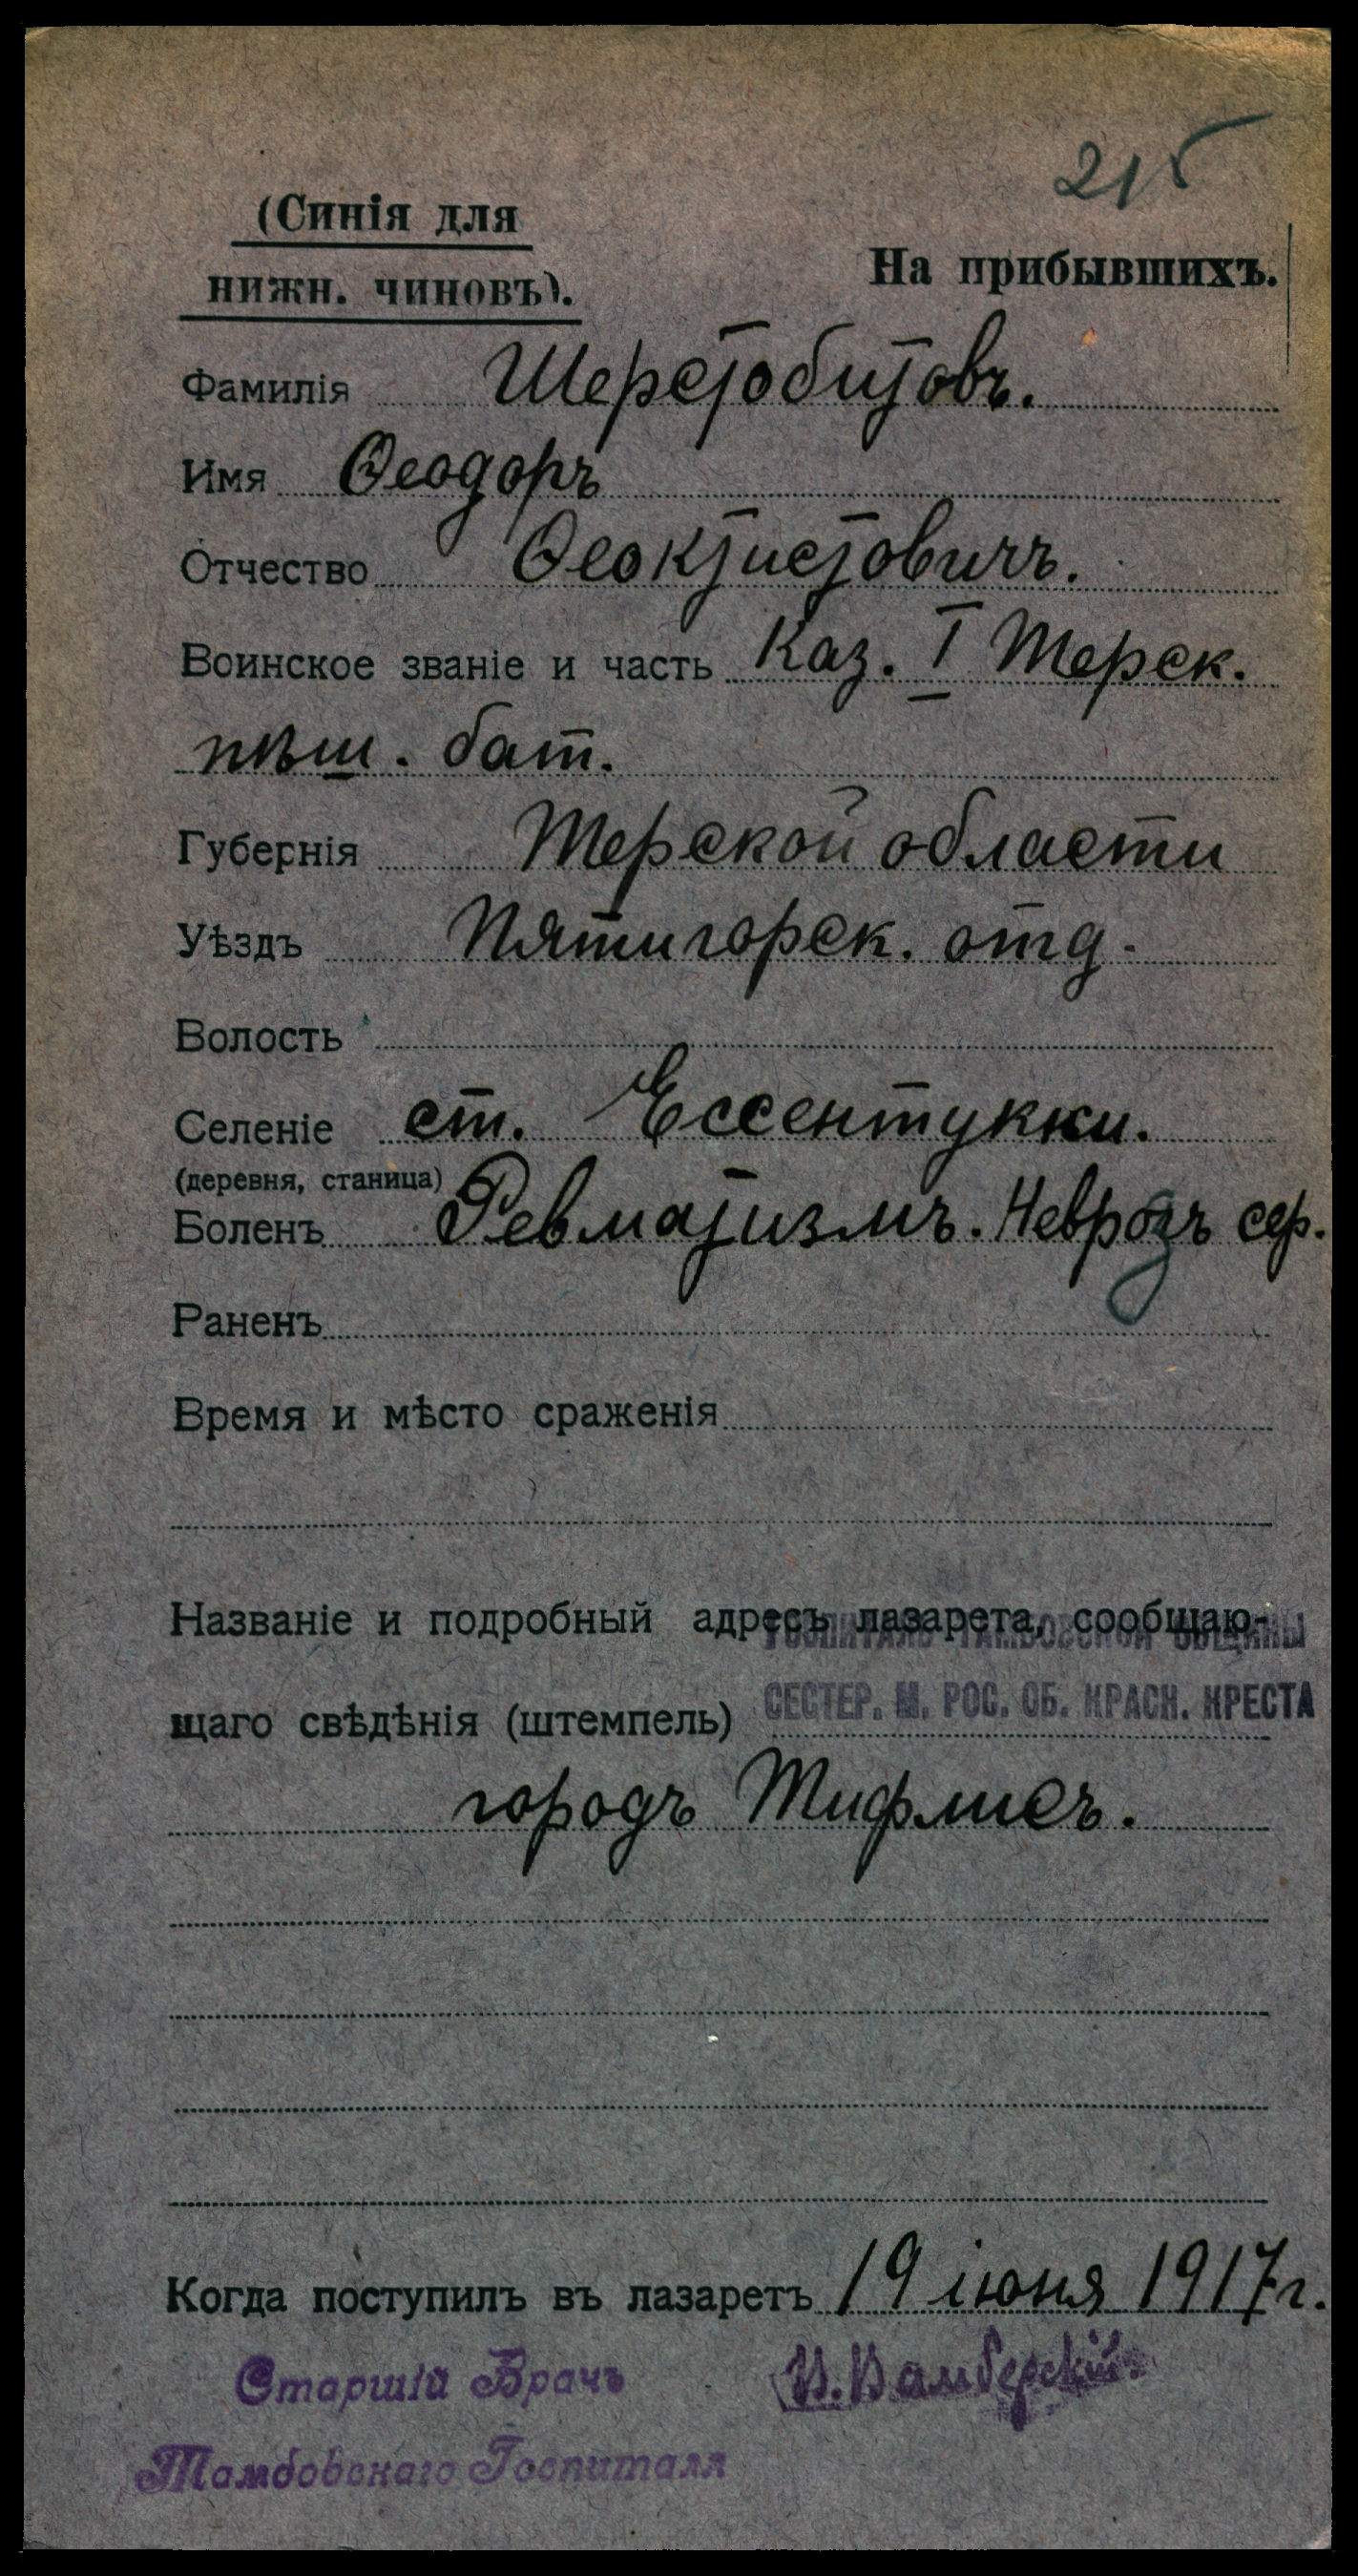 215
(Синія для
нижн. чиновъ).
На прибывшихъ.
Фамилія Шерстобитовъ.
Имя Ѳеодоръ
Отчество Ѳеоктистовичъ.
Воинское званіе и часть Каз. I Терск.
пѣш. бат.
Губернія Терской области
Уѣздъ Пятигорск. отд.
Волость
Селеніе ст. Ессентукки.
(деревня, станица)
Боленъ Ревматизмъ. Неврозъ сер.
Раненъ
Время и мѣсто сраженія
Названіе и подробный адресъ лазарета, сообщаю-
ГОСПИТАЛЬ ТАМБОВСКОЙ ОБЩИНЫ
щаго свѣдѣнія (штемпель) СЕСТЕР. М. РОС. ОБ. КРАСН. КРЕСТА
городъ Тифлисъ.
Когда поступилъ въ лазаретъ 19 іюня 1917 г.
Старшій Врачъ
Тамбовскаго Госпиталя